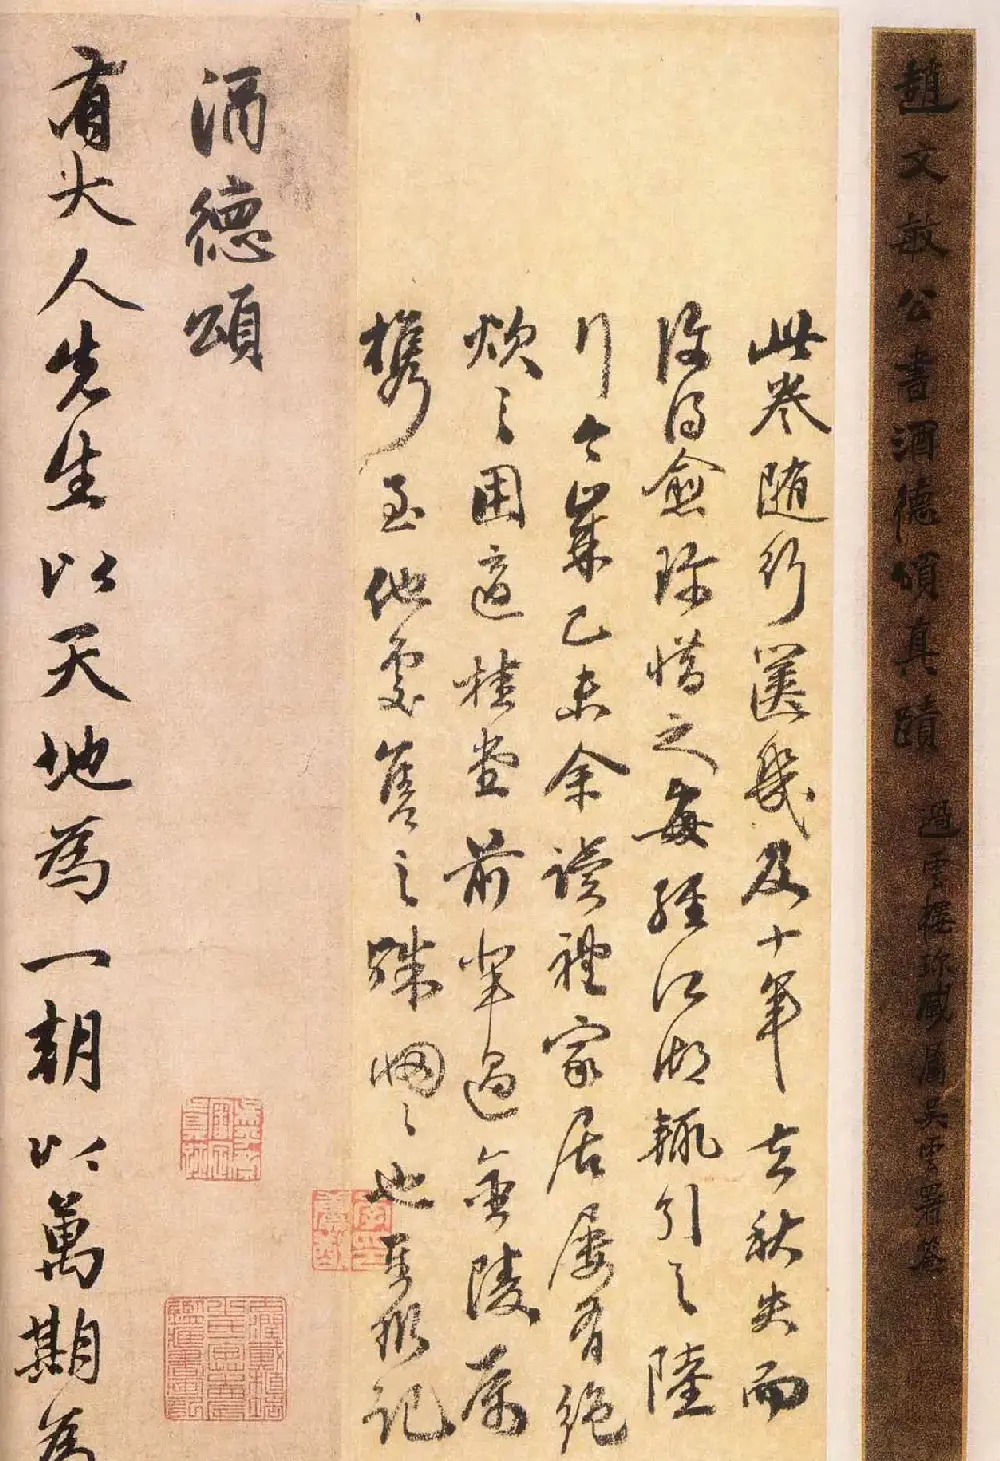 趙文敏公書酒德頌真蹟
過雲樓珍藏屬吳雲署簽
此卷隨行篋幾及十年去秋失而
復得愈珍惜之每經江湖輒引之陸
行今歲己未余讀禮家居屢有絕
炊之困適桂堂前輩過金陵屬
攜至他處售之殊悃悃也
記
酒德頌
有大人先生以天地為一朝以萬期為